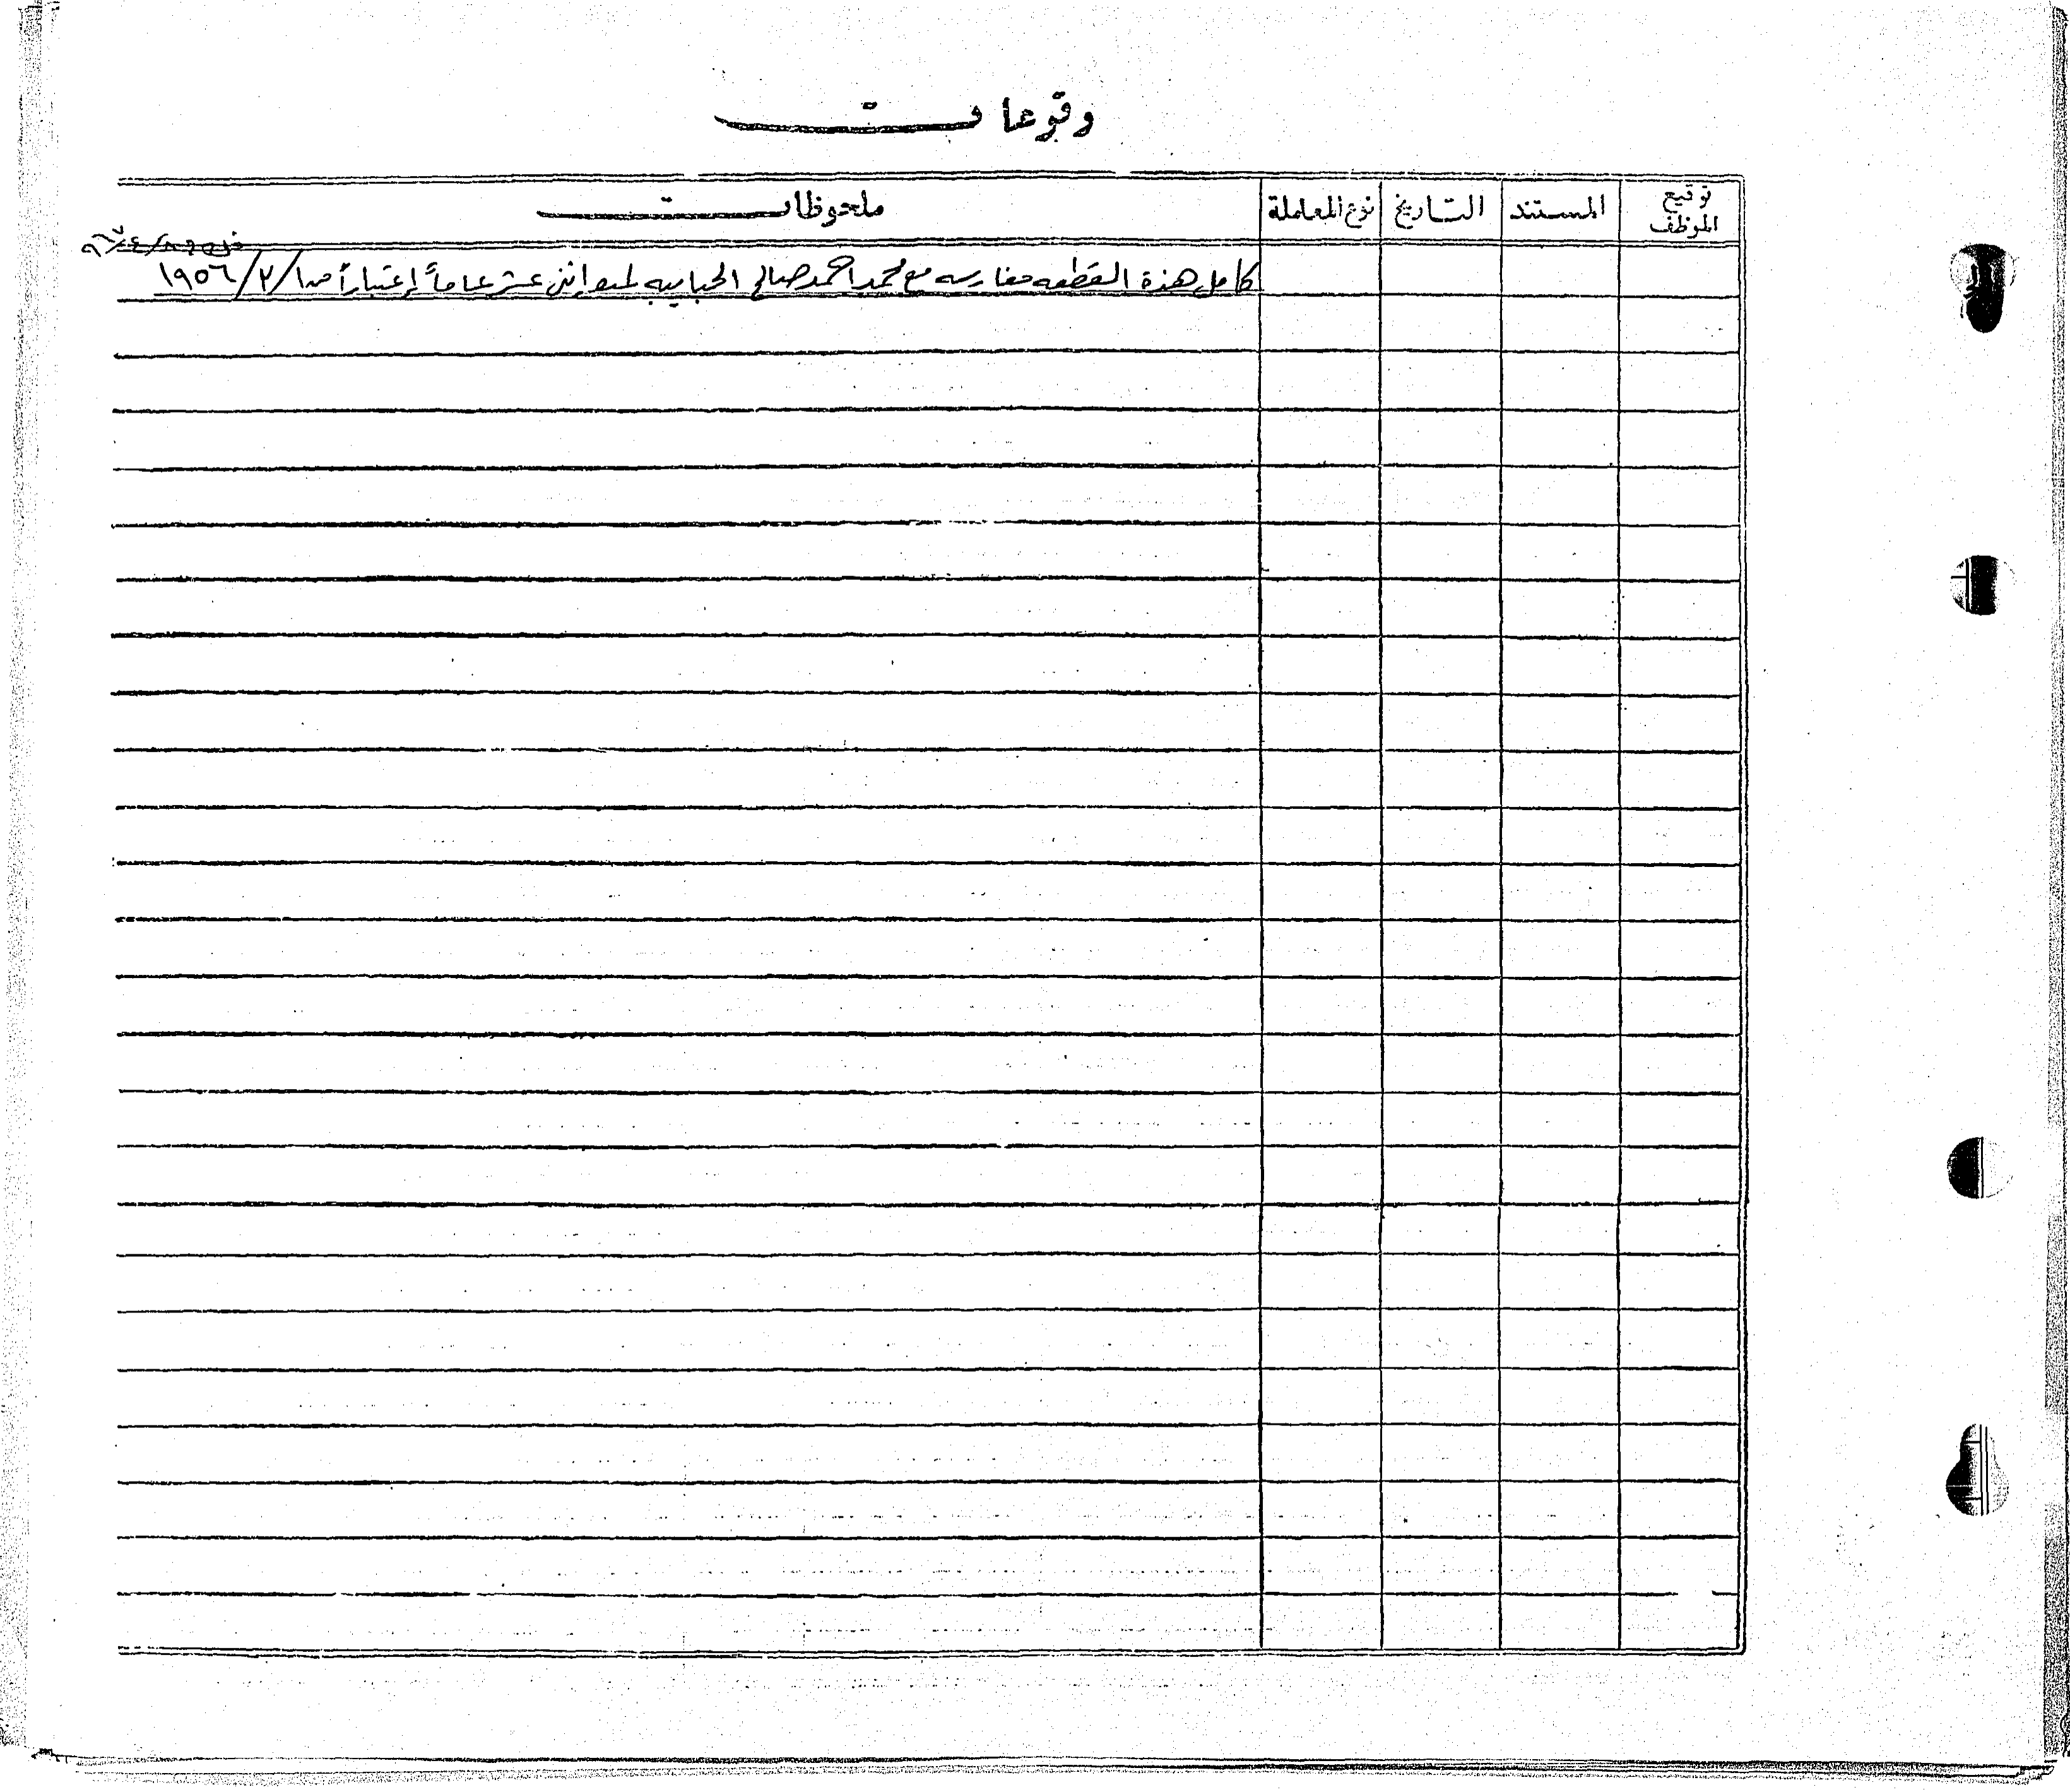 وقوعات
توقيع الموظف المستند التاريخ نوع المعاملة ملحوظات
كامل هذة القطعه مغارسه مع محمد احمد صالح الحبابيه لمده إثني عشر عاماً إعتباراً من ١/٢/١٩٥٦